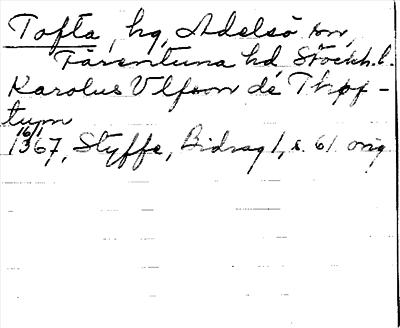 Tofta, hg, Adelsö sn,
Färentuna hd, Stockh.l.
Karolus Ulfson de Thof-
tum
16/1
1367, Styffe, Bidrag 1, s. 61 orig